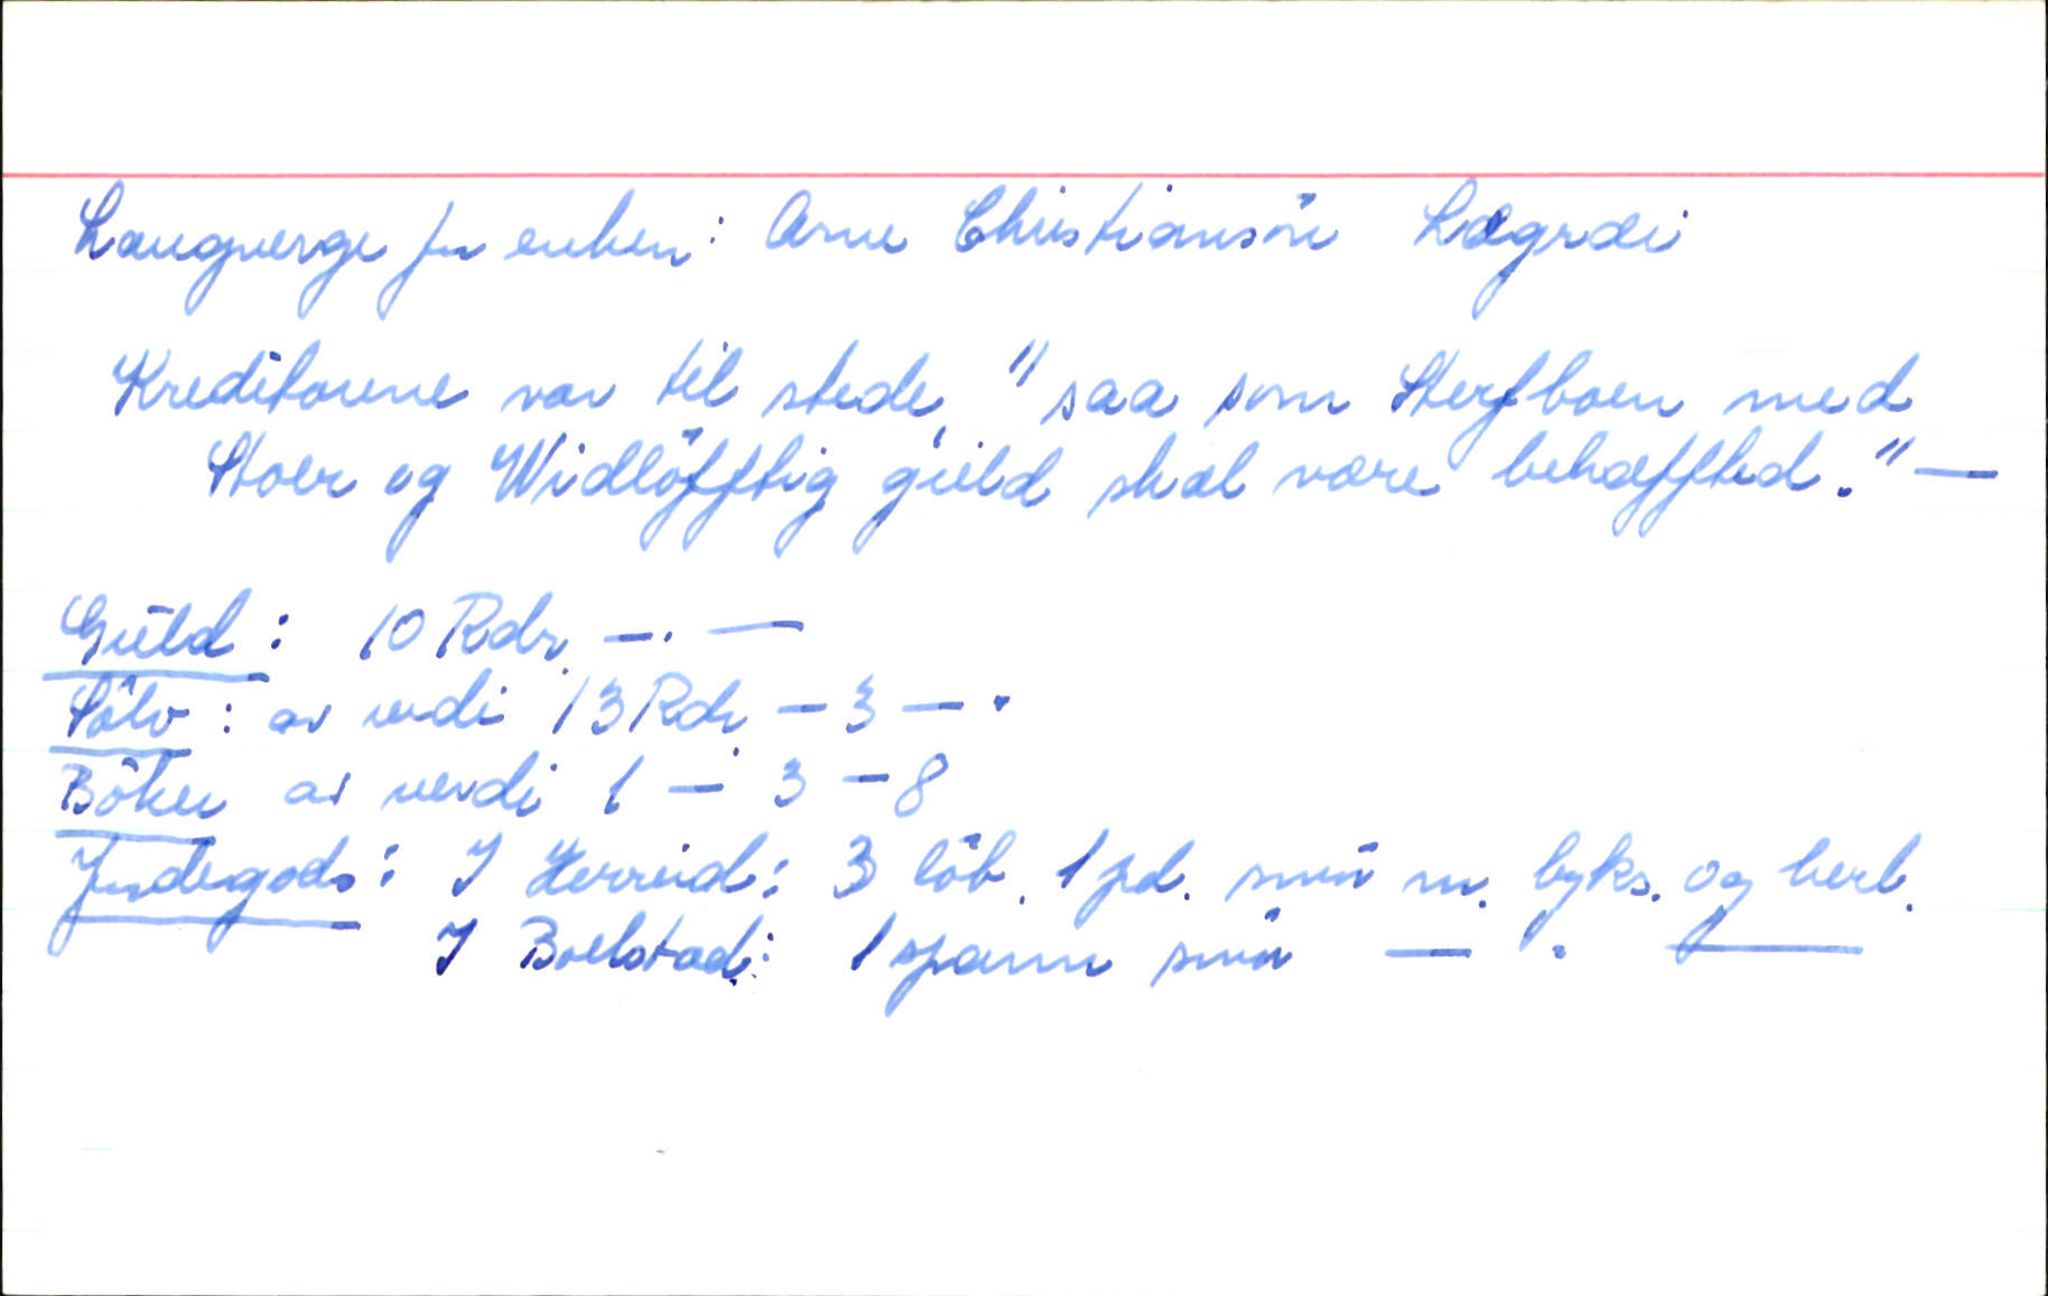 Laugverge for enken: Arne Christiansön Lægrdei
Kreditorene var til stede, "saa som Sterfboen med
Stoer og Widlöfftig giæld skal være behæffted." —
Guld: 10 Rdr. — . —
Sölv: av verdi 13 Rdr. — 3 — .
Böker av verdi 1 — 3 — 8
Jordegods: I Herreid: 3 löb. 1 pd. smör m. byks. og herl.
I Boelstad: 1 spann smör — . —